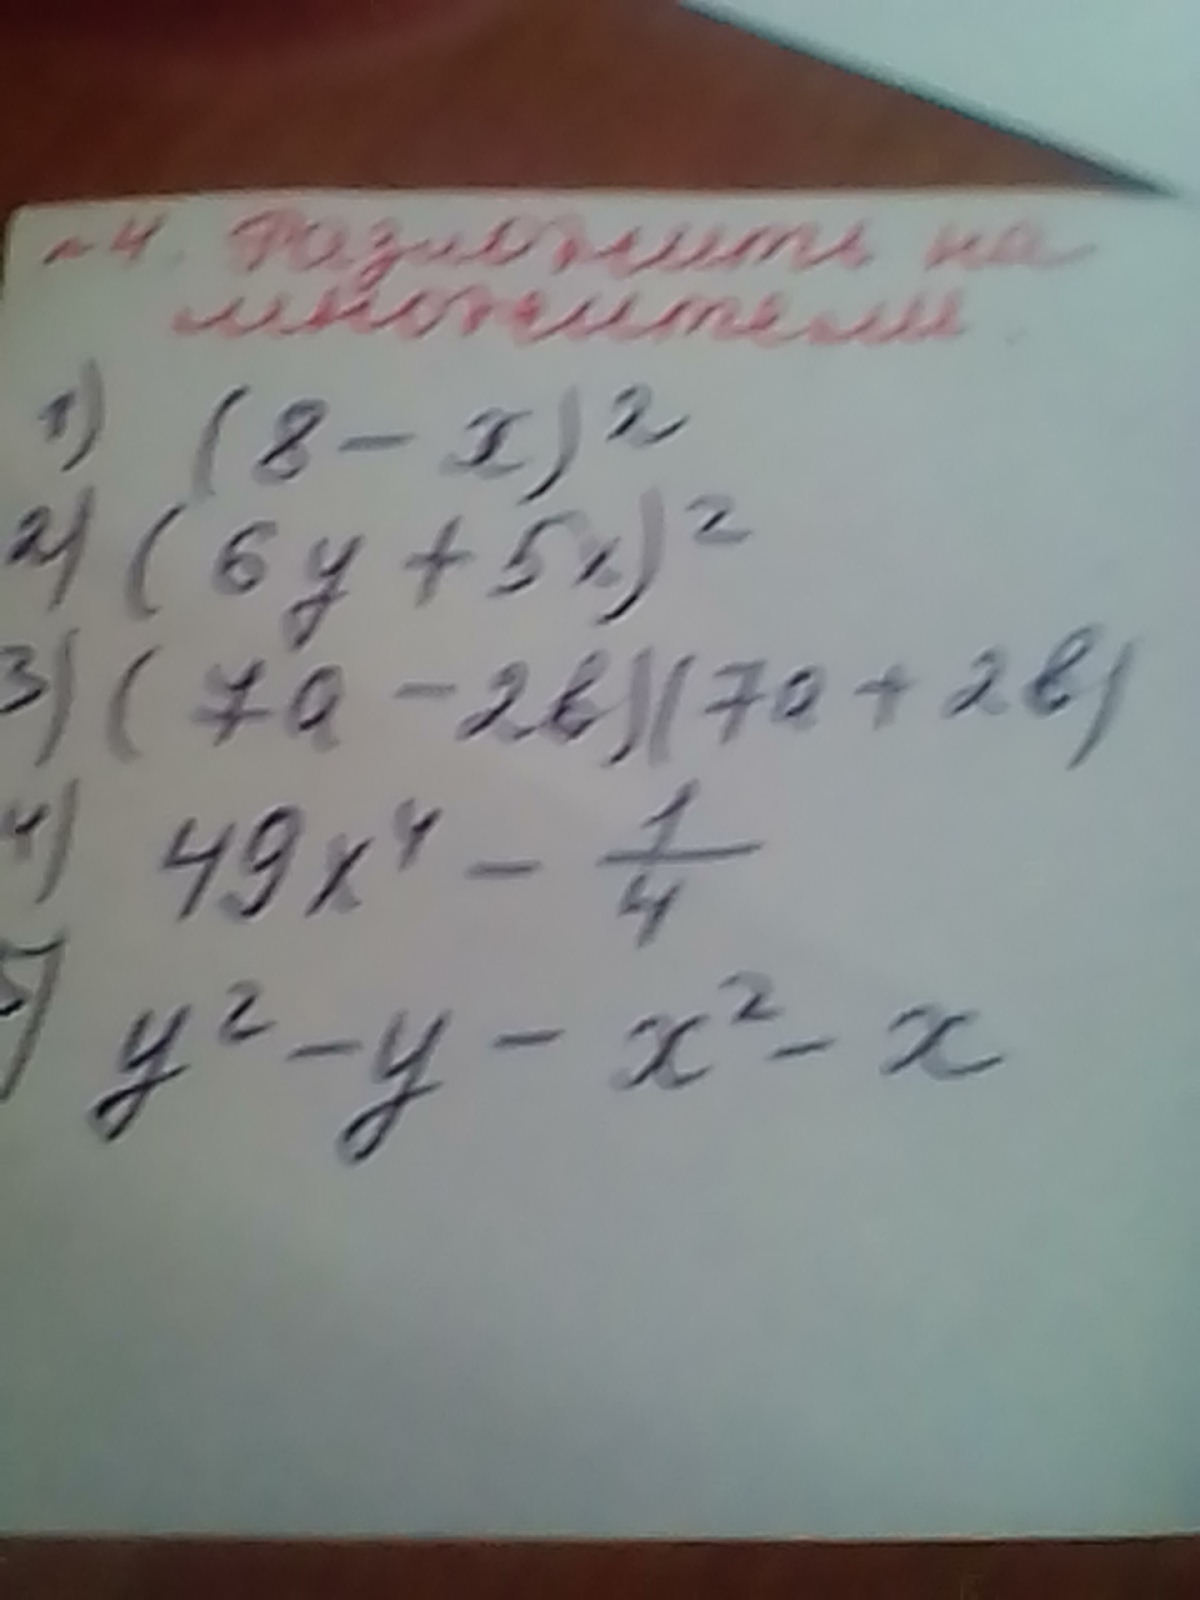 №4. Разложить на
множители.
1) (8 - x)²
2) (6y + 5x)²
3) (7a - 2b)(7a + 2b)
4) 49x⁴ - 1/4
5) y² - y - x² - x